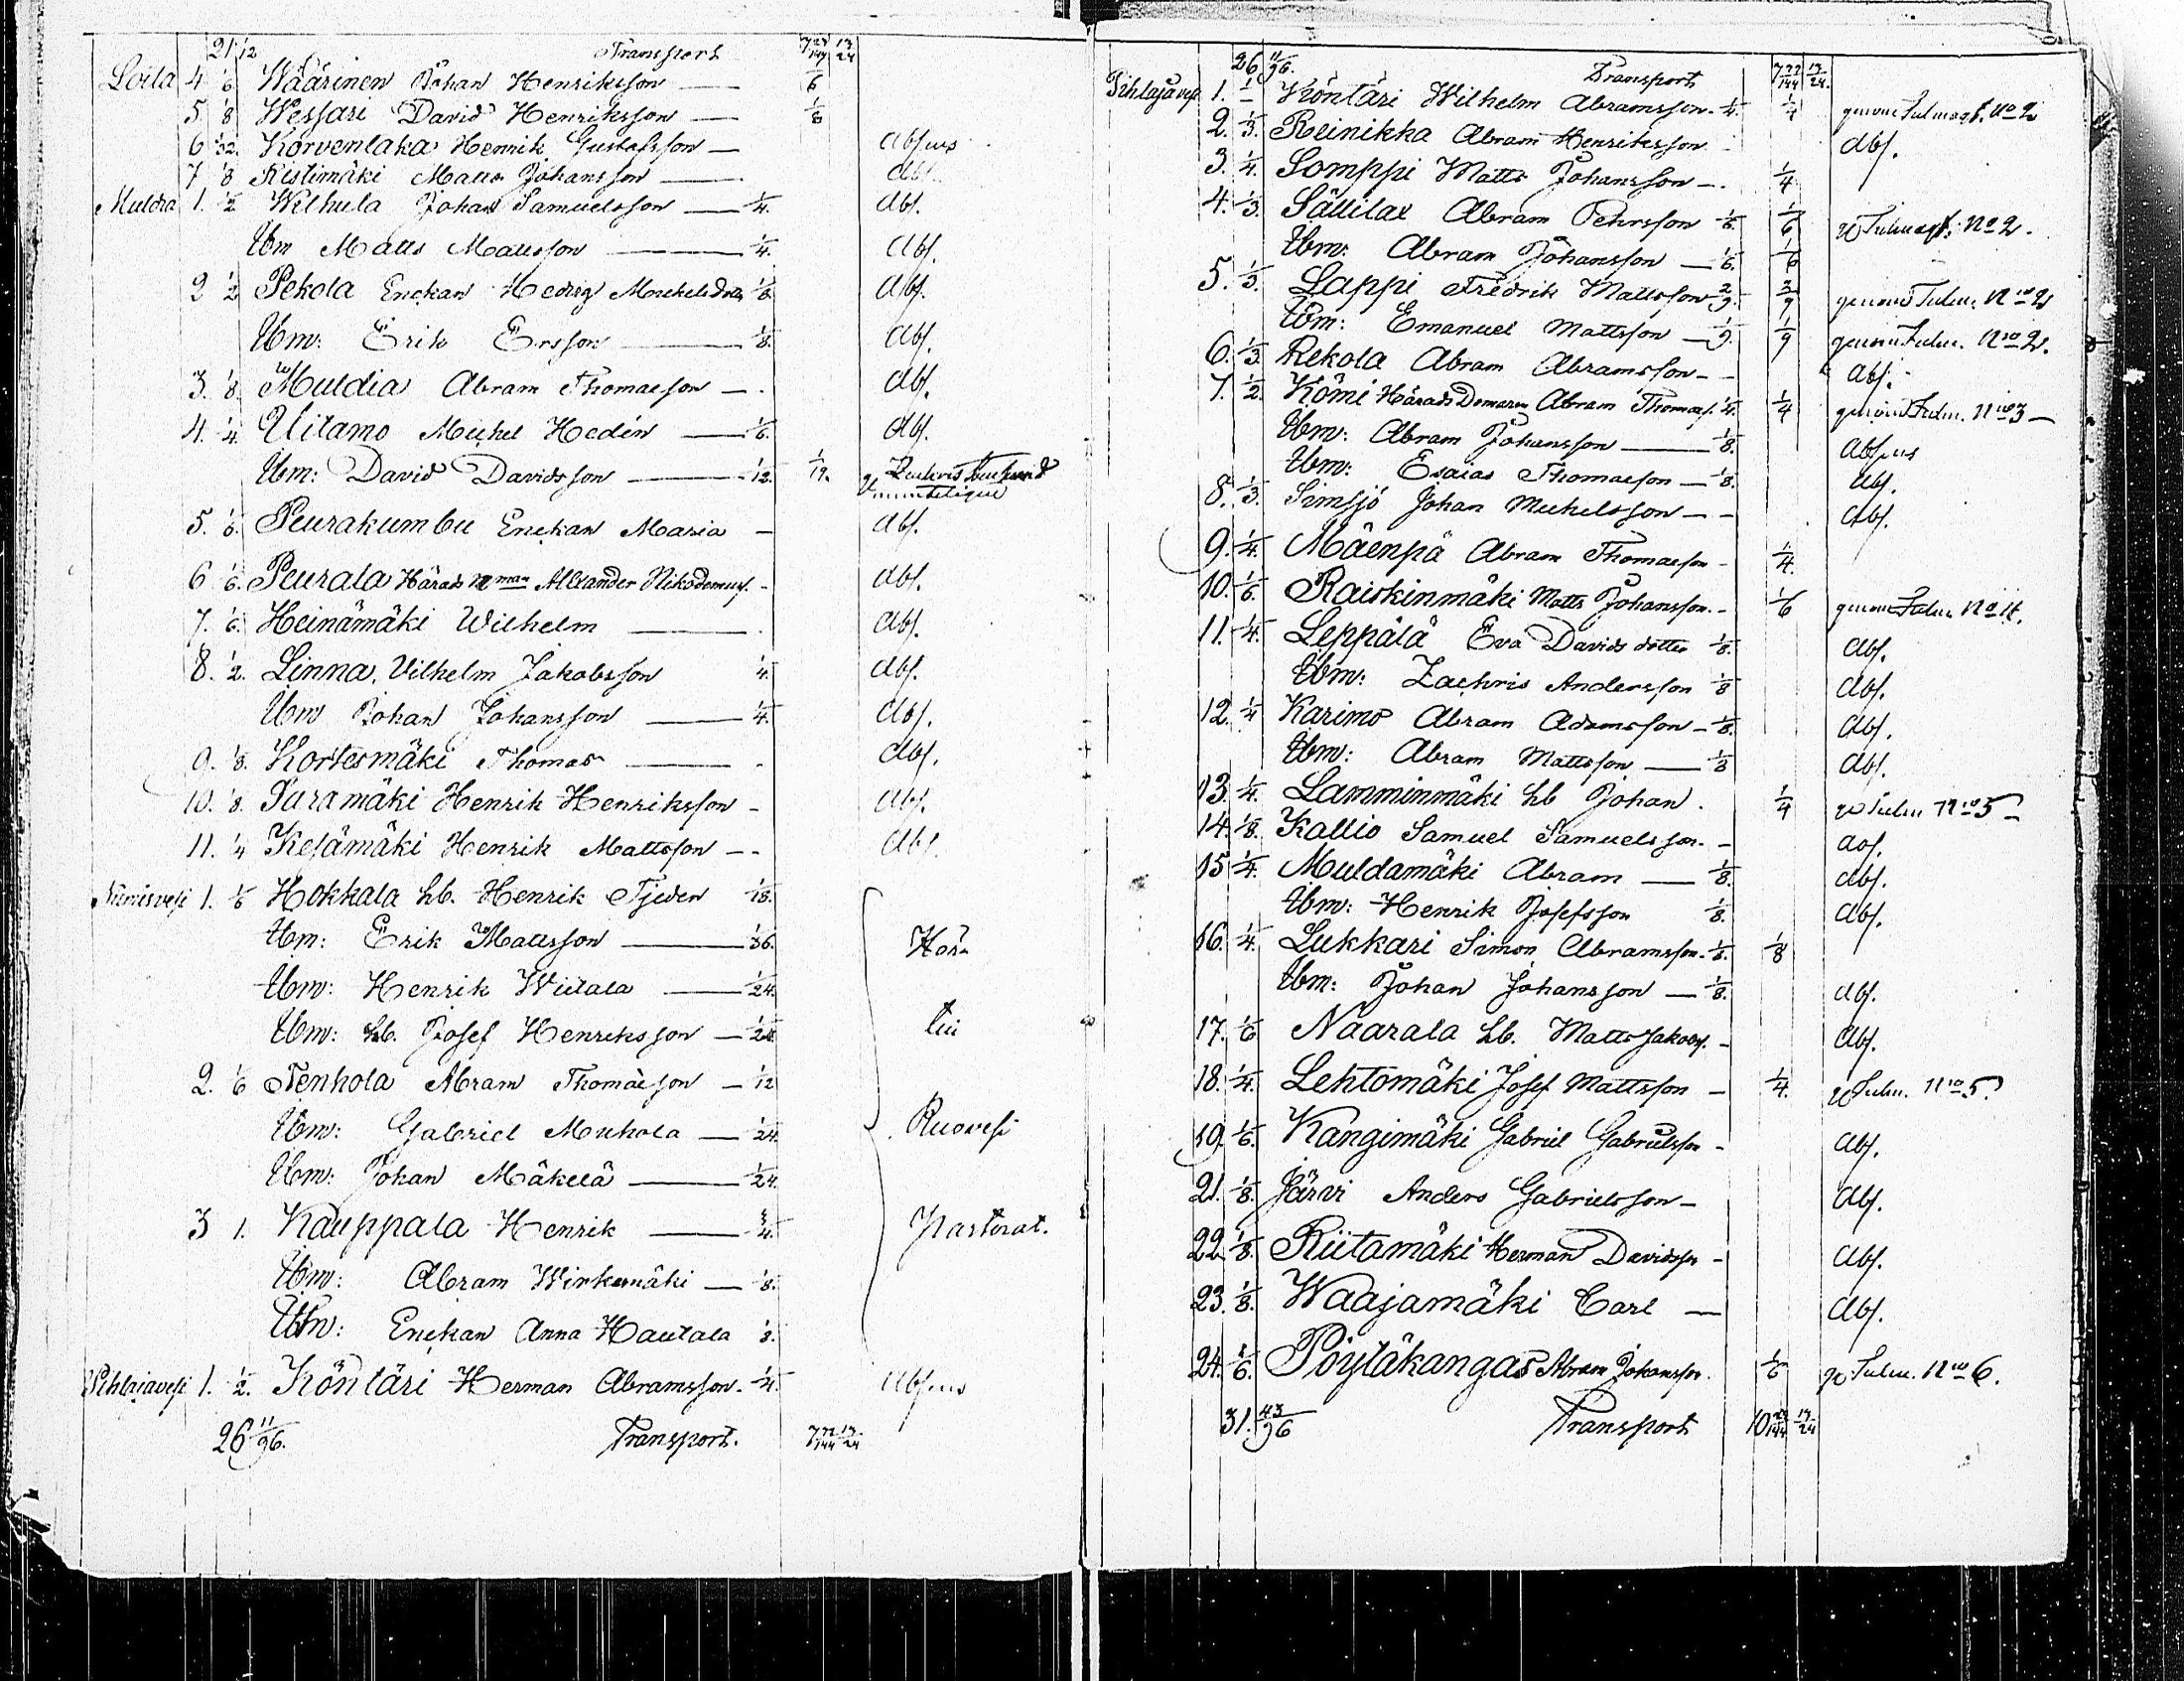 21 1/12 Transport 13/24
Loila 4 1/6 Wäärinen Johan Henriksson — 1/6
5 1/8 Wessari David Henriksson — 1/8
6 1/32 Korvenlaka Henrik Gustafsson — Absens
7 1/8 Ristimäki Matts Johansson — abs.
Muldia 1. 1/2 Wilhula Johan Samuelsson — 1/4. Abs.
Ibm Matts Mattsson — 1/4. Abs.
2 1/2 Pekola Enckan Hedvig Michelsdotter 1/8. Abs.
Ibm: Erik Ersson — 1/8. Abs.
3. 1/8. Muldia Abram Thomasson — Abs.
4. 1/4. Uitamo Michel Hedén — 1/6. Abs.
Ibm: David Davidsson — 1/12. 1/12.
5. 1/6. Peurakumbu Enckan Maria — Abs.
6 1/6. Peurala Härads Nman Alexander Nikodemuss. - Abs.
7. 1/6. Heinämäki Wilhelm — Abs.
8. 1/2. Linna, Vilhelm Jakobsson 1/4. Abs.
Ibm Johan Johansson — 1/4. Abs.
9. 1/8. Kortesmäki Thomas — Abs.
10. 1/8. Paramäki Henrik Henriksson - Abs.
11. 1/4 Kesämäki Henrik Mattsson -- Abs.
1. 1/6 Hokkala Lb. Henrik Tjeder 1/18.
Ibm: Erik Mattsson — 1/36. Kor-
Ibm: Henrik Wiitala — 1/24.
Ibm: Lb. Josef Henriksson — 1/24. tui
2. 1/6 Tenhola Abram Thomasson — 1/12
Ibm: Gabriel Mukola — 1/24. Ruovesi
Ibm: Johan Mäkelä — 1/24.
3 1. Kauppala Henrik — 3/4. Pastorat.
Ibm: Abram Wirkamäki — 1/8.
Ibm: Enckan Anna Hautala 1/8.
Pihlajavesi 1. 1/2. Köntäri Herman Abramsson. 1/4. Absens
26 11/96. Transport. 7 77/144 13/24
26 11/96. Transport 7 77/144 13/24.
Pihlajavesi 1. Köntäri Wilhelm Abramsson. 1/4. 1/4 No 2
2. 1/3. Reinikka Abram Henriksson - Abs.
3. 1/4. Somppi Matts Johansson —. 1/4
4. 1/3. Sällilax Abram Pehrsson 1/6. 1/6 No 2.
Ibm: Abram Johansson — 1/6. 1/6
5. 1/3. Lappi Fredrik Mattsson 2/9. 2/9 No 2
Ibm: Emanuel Mattsson — 1/9. 1/9 No 2.
6. 1/3. Rekola Abram Abramsson - - Abs.
7. 1/2. Kömi Härads Domaren Abram Thomass. 1/4. 1/4 No 3 —
Ibm: Abram Johansson — 1/8. Absens
Ibm: Esaias Thomasson — 1/8. Abs.
8. 1/3. Simsjö Johan Michelsson — - Abs.
9. 1/4. Mäenpä Abram Thomasson - 1/4.
10. 1/6. Raiskinmäki Matts Johansson. - 1/6
11. 1/4. Leppälä Eva Davids dotter 1/8. Abs.
Ibm: Zachris Andersson 1/8 Abs.
12. 1/4 Karimo Abram Adamsson — 1/8. Abs.
Ibm: Abram Mattsson — 1/8 Abs.
13. 1/4. Lamminmäki Lb Johan. 1/4 No 5 -
14. 1/8. Kallio Samuel Samuelsson. - Abs.
15 1/4. Muldamäki Abram — 1/8. Abs.
Ibm: Henrik Josefsson 1/8. Abs.
16. 1/4. Lukkari Simon Abramsson. 1/8. 1/8
Ibm: Johan Johansson — 1/8. Abs.
17. 1/6 Naarala Lb. Matts Jakobs. - Abs.
18. 1/4. Lehtomäki Josef Mattsson - 1/4. No 5.
19. 1/6. Kangimäki Gabriel Gabrielsson - Abs.
21. 1/8. Järvi Anders Gabrielsson — Abs.
22. 1/8. Riitamäki Herman Davidsson - Abs.
23. 1/8. Waajamäki Carl — Abs.
24. 1/6. Pöytäkangas Abram Johansson. 1/6 No 6.
31. 43/96 Transport 10 13/24